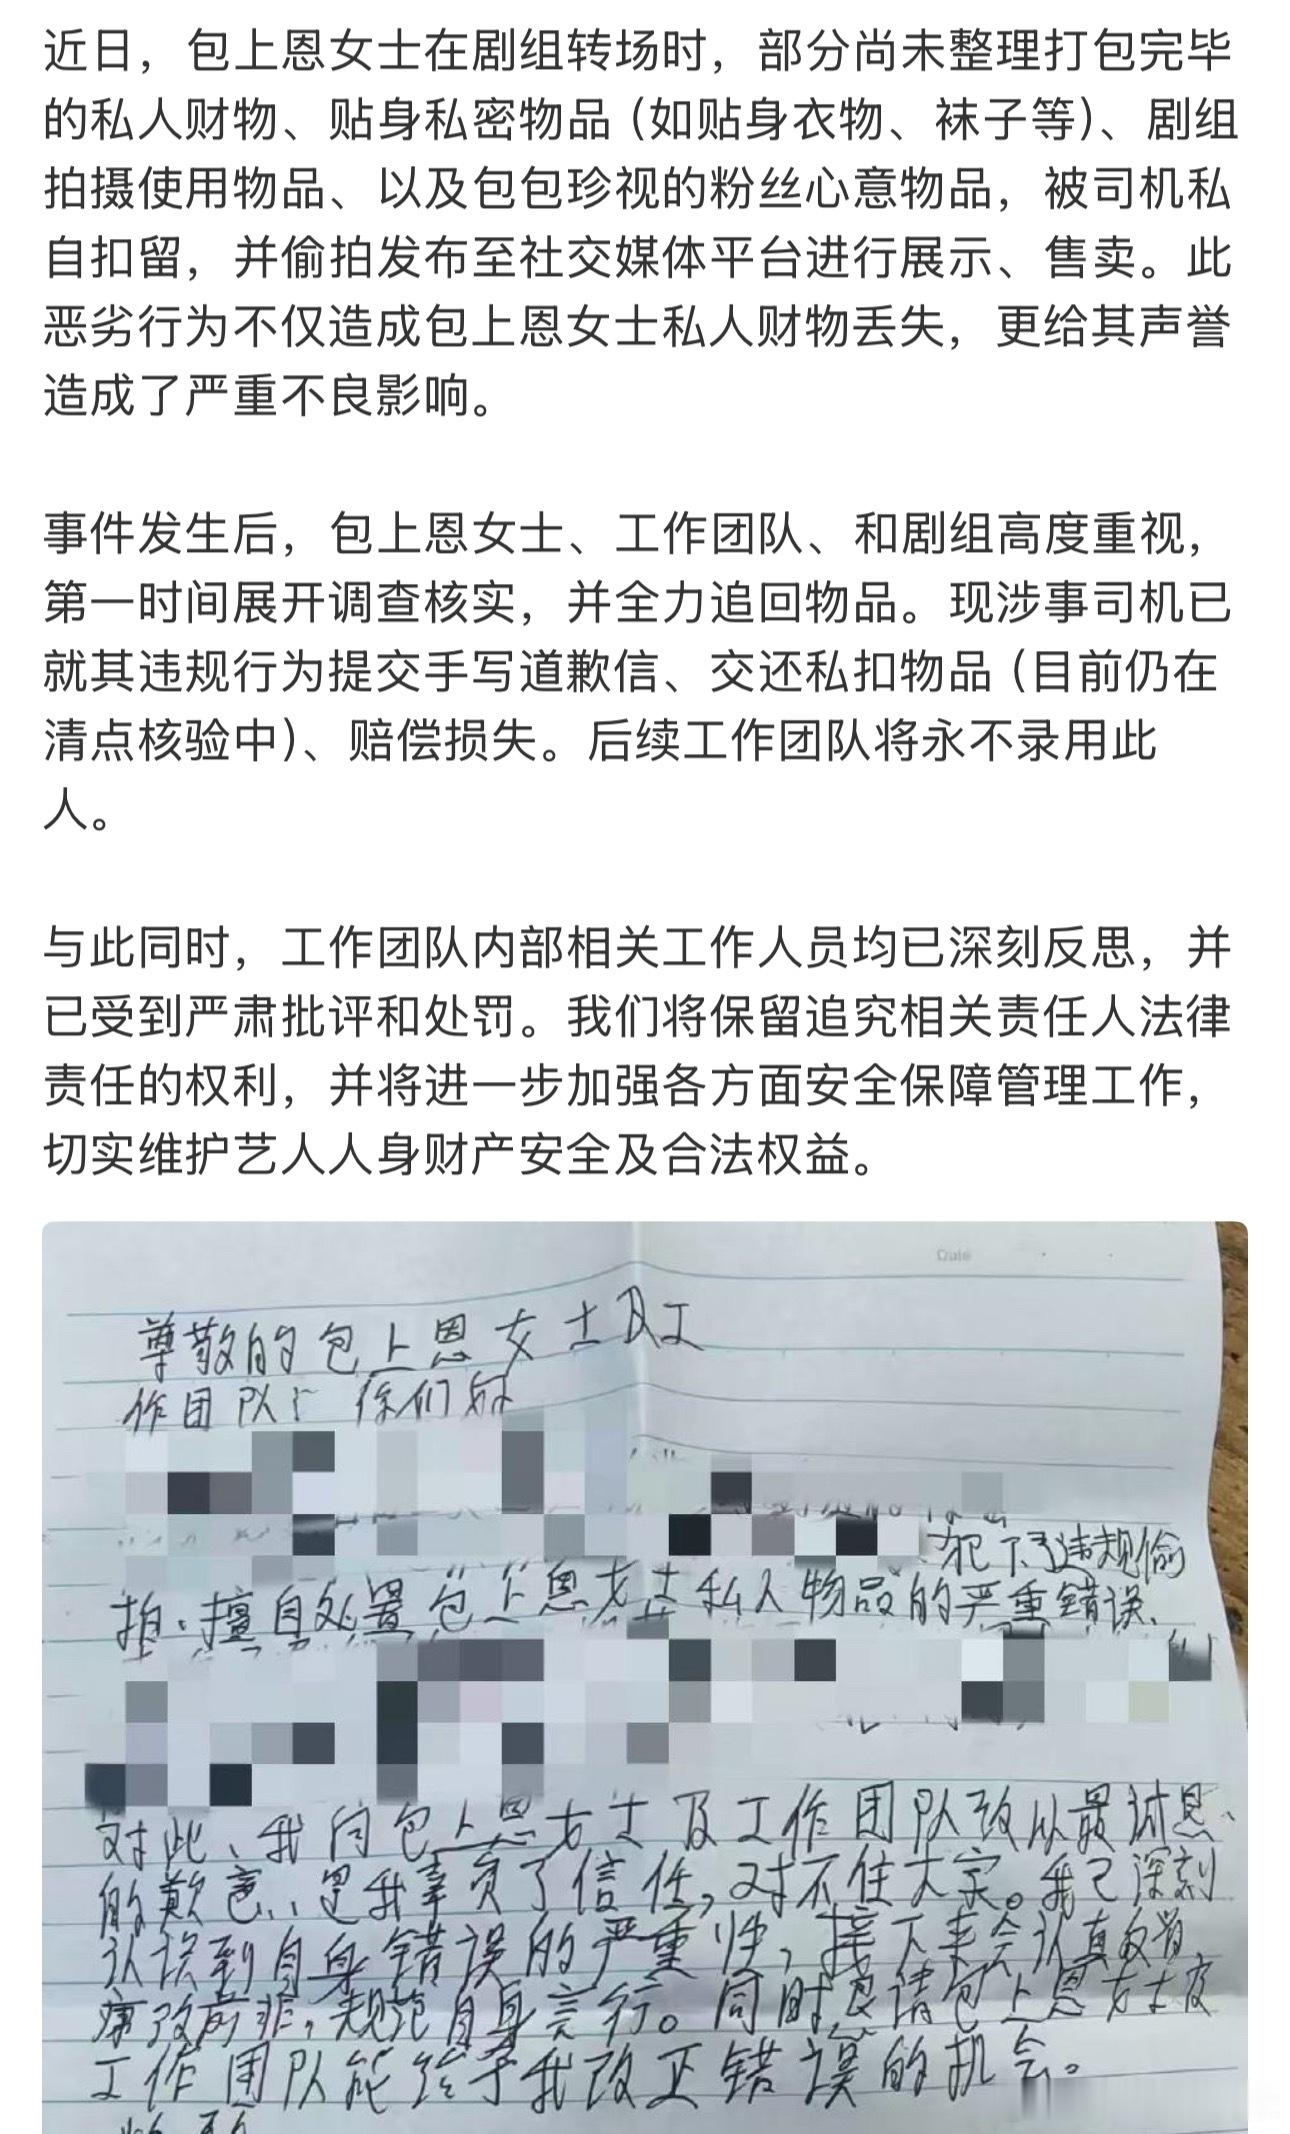 近日，包上恩女士在剧组转场时，部分尚未整理打包完毕
的私人财物、贴身私密物品（如贴身衣物、袜子等）、剧组
拍摄使用物品、以及包包珍视的粉丝心意物品，被司机私
自扣留，并偷拍发布至社交媒体平台进行展示、售卖。此
恶劣行为不仅造成包上恩女士私人财物丢失，更给其声誉
造成了严重不良影响。
事件发生后，包上恩女士、工作团队、和剧组高度重视，
第一时间展开调查核实，并全力追回物品。现涉事司机已
就其违规行为提交手写道歉信、交还私扣物品（目前仍在
清点核验中）、赔偿损失。后续工作团队将永不录用此
人。
与此同时，工作团队内部相关工作人员均已深刻反思，并
已受到严肃批评和处罚。我们将保留追究相关责任人法律
责任的权利，并将进一步加强各方面安全保障管理工作，
切实维护艺人人身财产安全及合法权益。
Date
尊敬的包上恩女士及工
作团队：你们好
犯下了违规偷
拍、擅自处置包上恩女士私人物品的严重错误、
对此、我向包上恩女士及工作团队致以最诚恳
的歉意、是我辜负了信任，对不住大家。我已深刻
认识到自身错误的严重性，接下来会认真改省，
痛改前非，规范自身言行。同时恳请包上恩女士及
工作团队能给予我改正错误的机会。